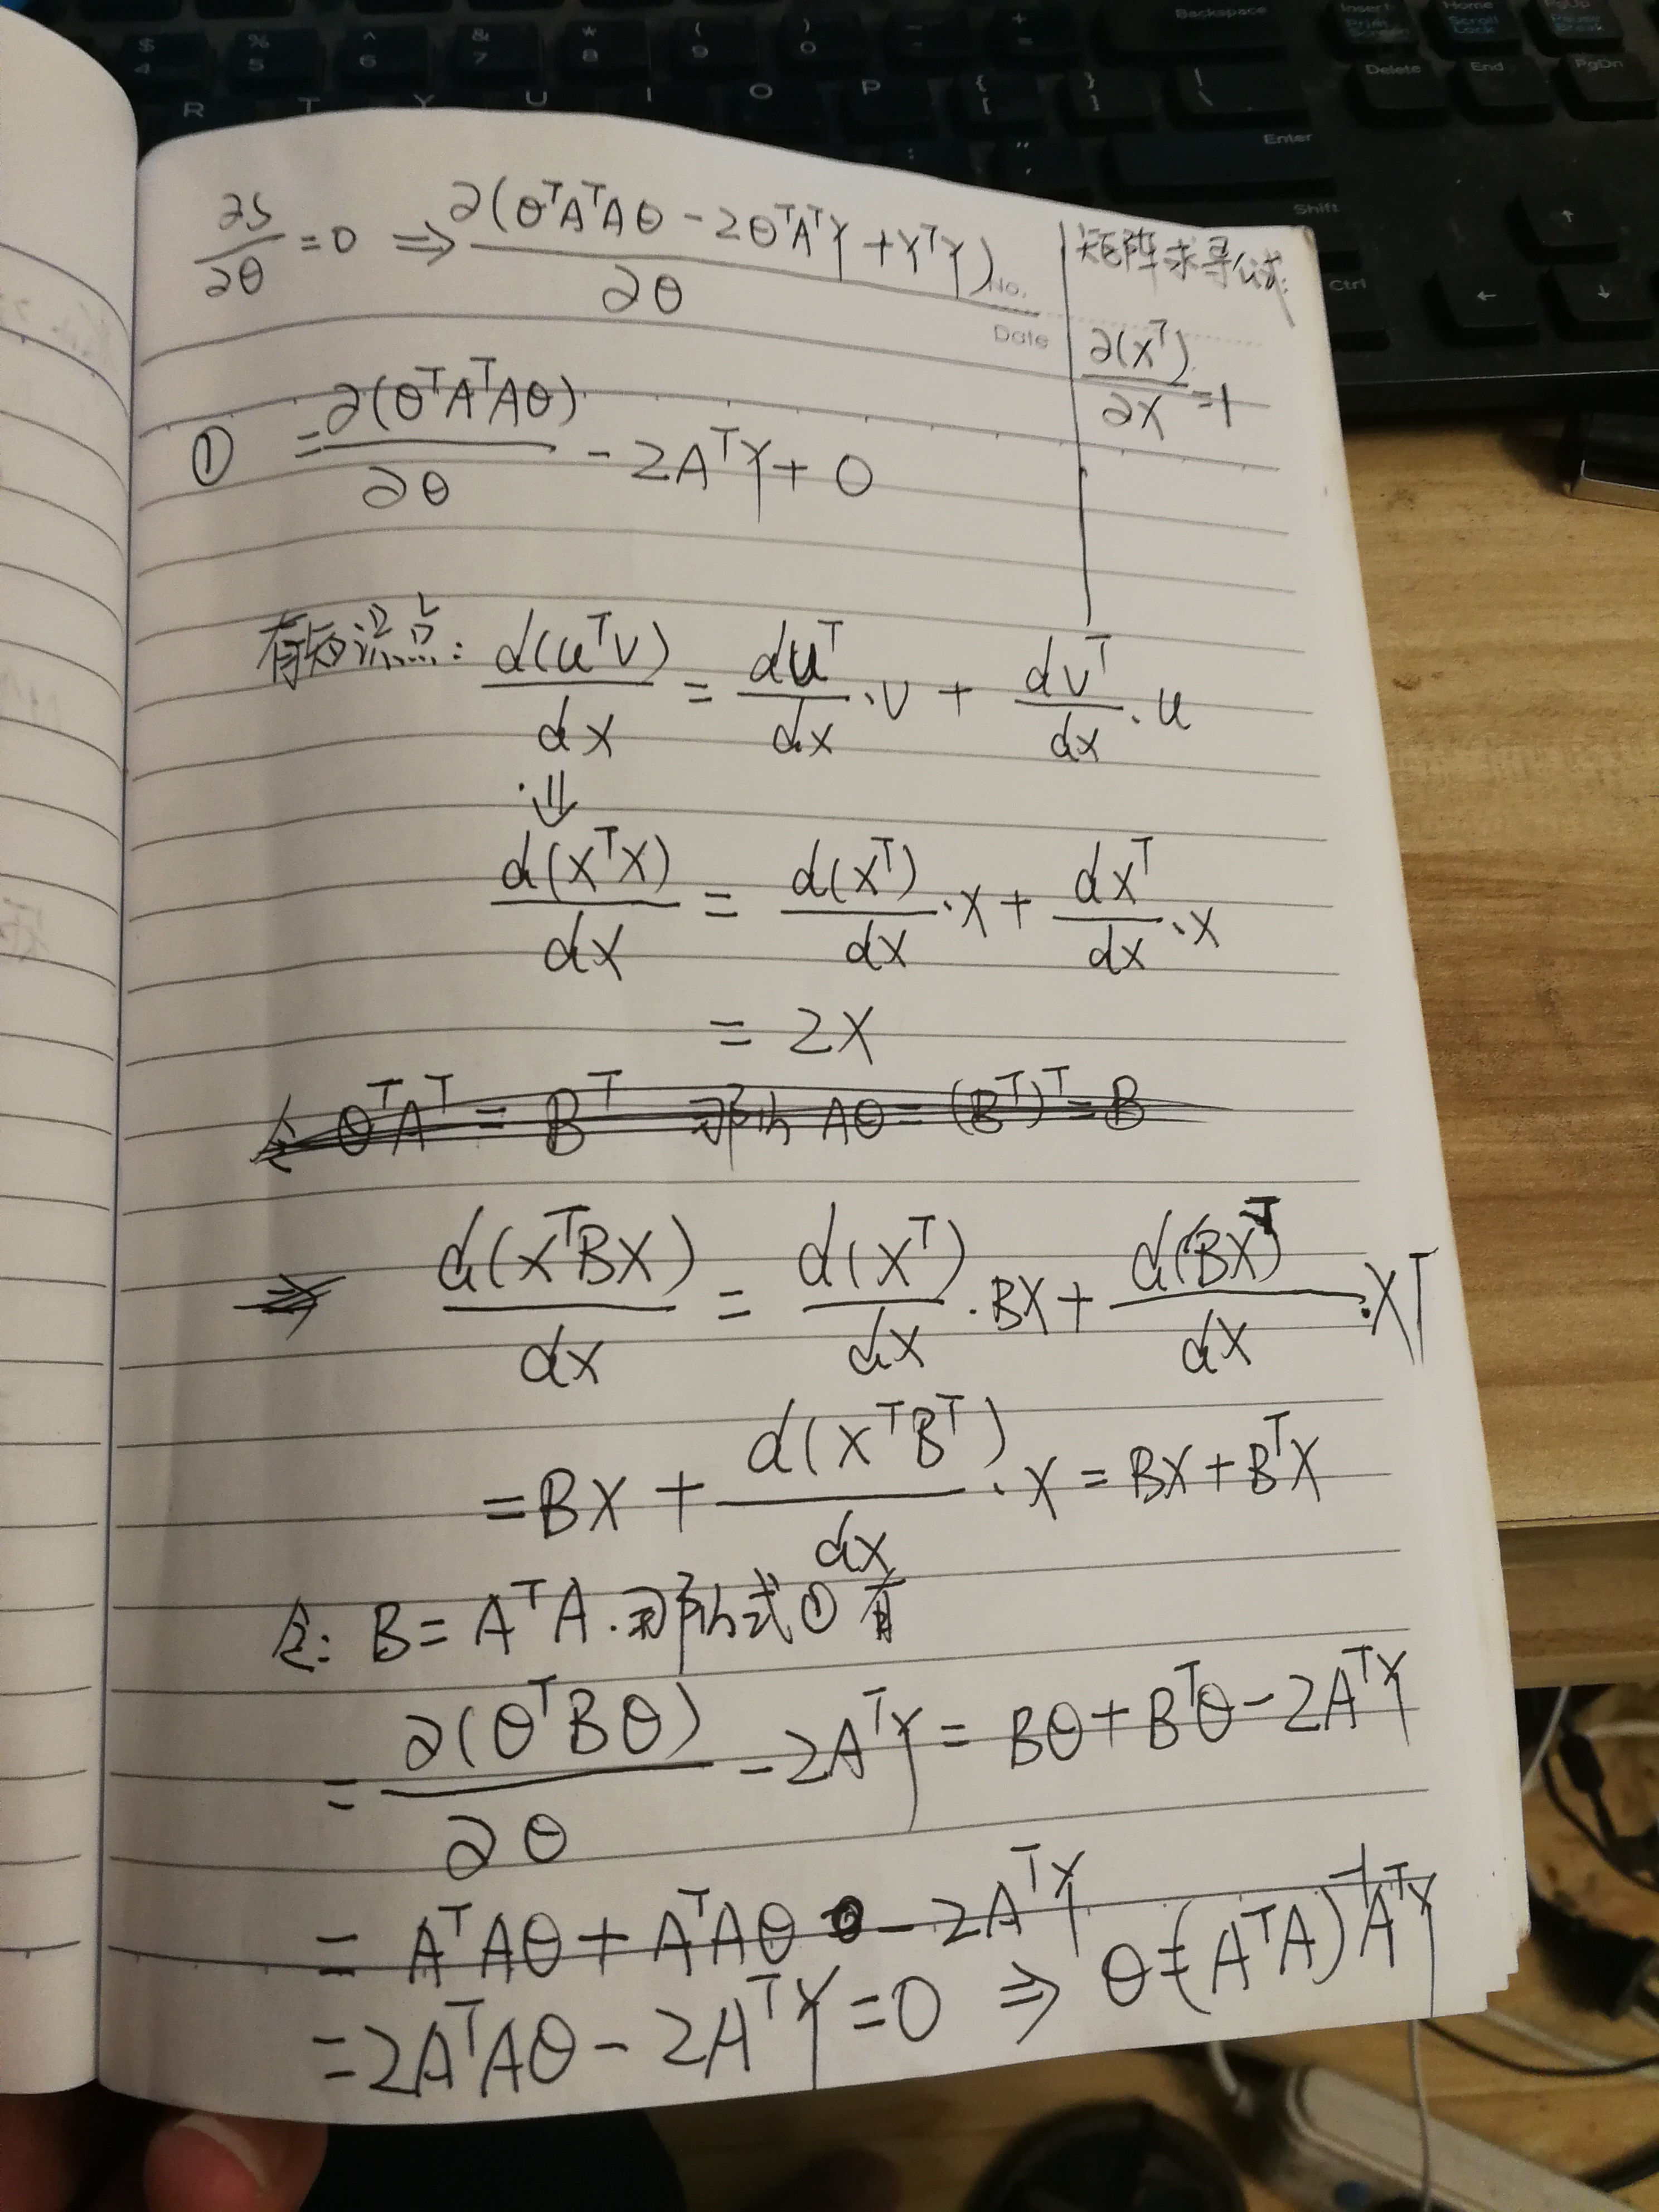 $ % ^ & * ( ) - +
4 5 6 7 8 9 0 =
Backspace
Insert Home PgUp
Print Screen Scroll Lock Pause Break
R T Y U I O P { [ } ] | \
Delete End PgDn
Enter
Shift
Ctrl
∂S/∂θ = 0 ⇒ ∂(θᵀAᵀAθ - 2θᵀAᵀY + YᵀY)/∂θ
矩阵求导公式:
No.
Date
∂(xᵀ)/∂x = 1
① = ∂(θᵀAᵀAθ)/∂θ - 2AᵀY + 0
有知识点: d(uᵀv)/dx = duᵀ/dx · v + dvᵀ/dx · u
⇓
d(xᵀx)/dx = d(xᵀ)/dx · x + dxᵀ/dx · x
= 2x
令 θᵀAᵀ = Bᵀ 那么 Aθ = (Bᵀ)ᵀ = B
⇒ d(xᵀBx)/dx = d(xᵀ)/dx · Bx + d(Bx)ᵀ/dx · xᵀ
= Bx + d(xᵀBᵀ)/dx · x = Bx + Bᵀx
令: B = AᵀA. 那么式① 有
= ∂(θᵀBθ)/∂θ - 2AᵀY = Bθ + Bᵀθ - 2AᵀY
= AᵀAθ + AᵀAθ - 2AᵀY
= 2AᵀAθ - 2AᵀY = 0 ⇒ θ = (AᵀA)⁻¹AᵀY